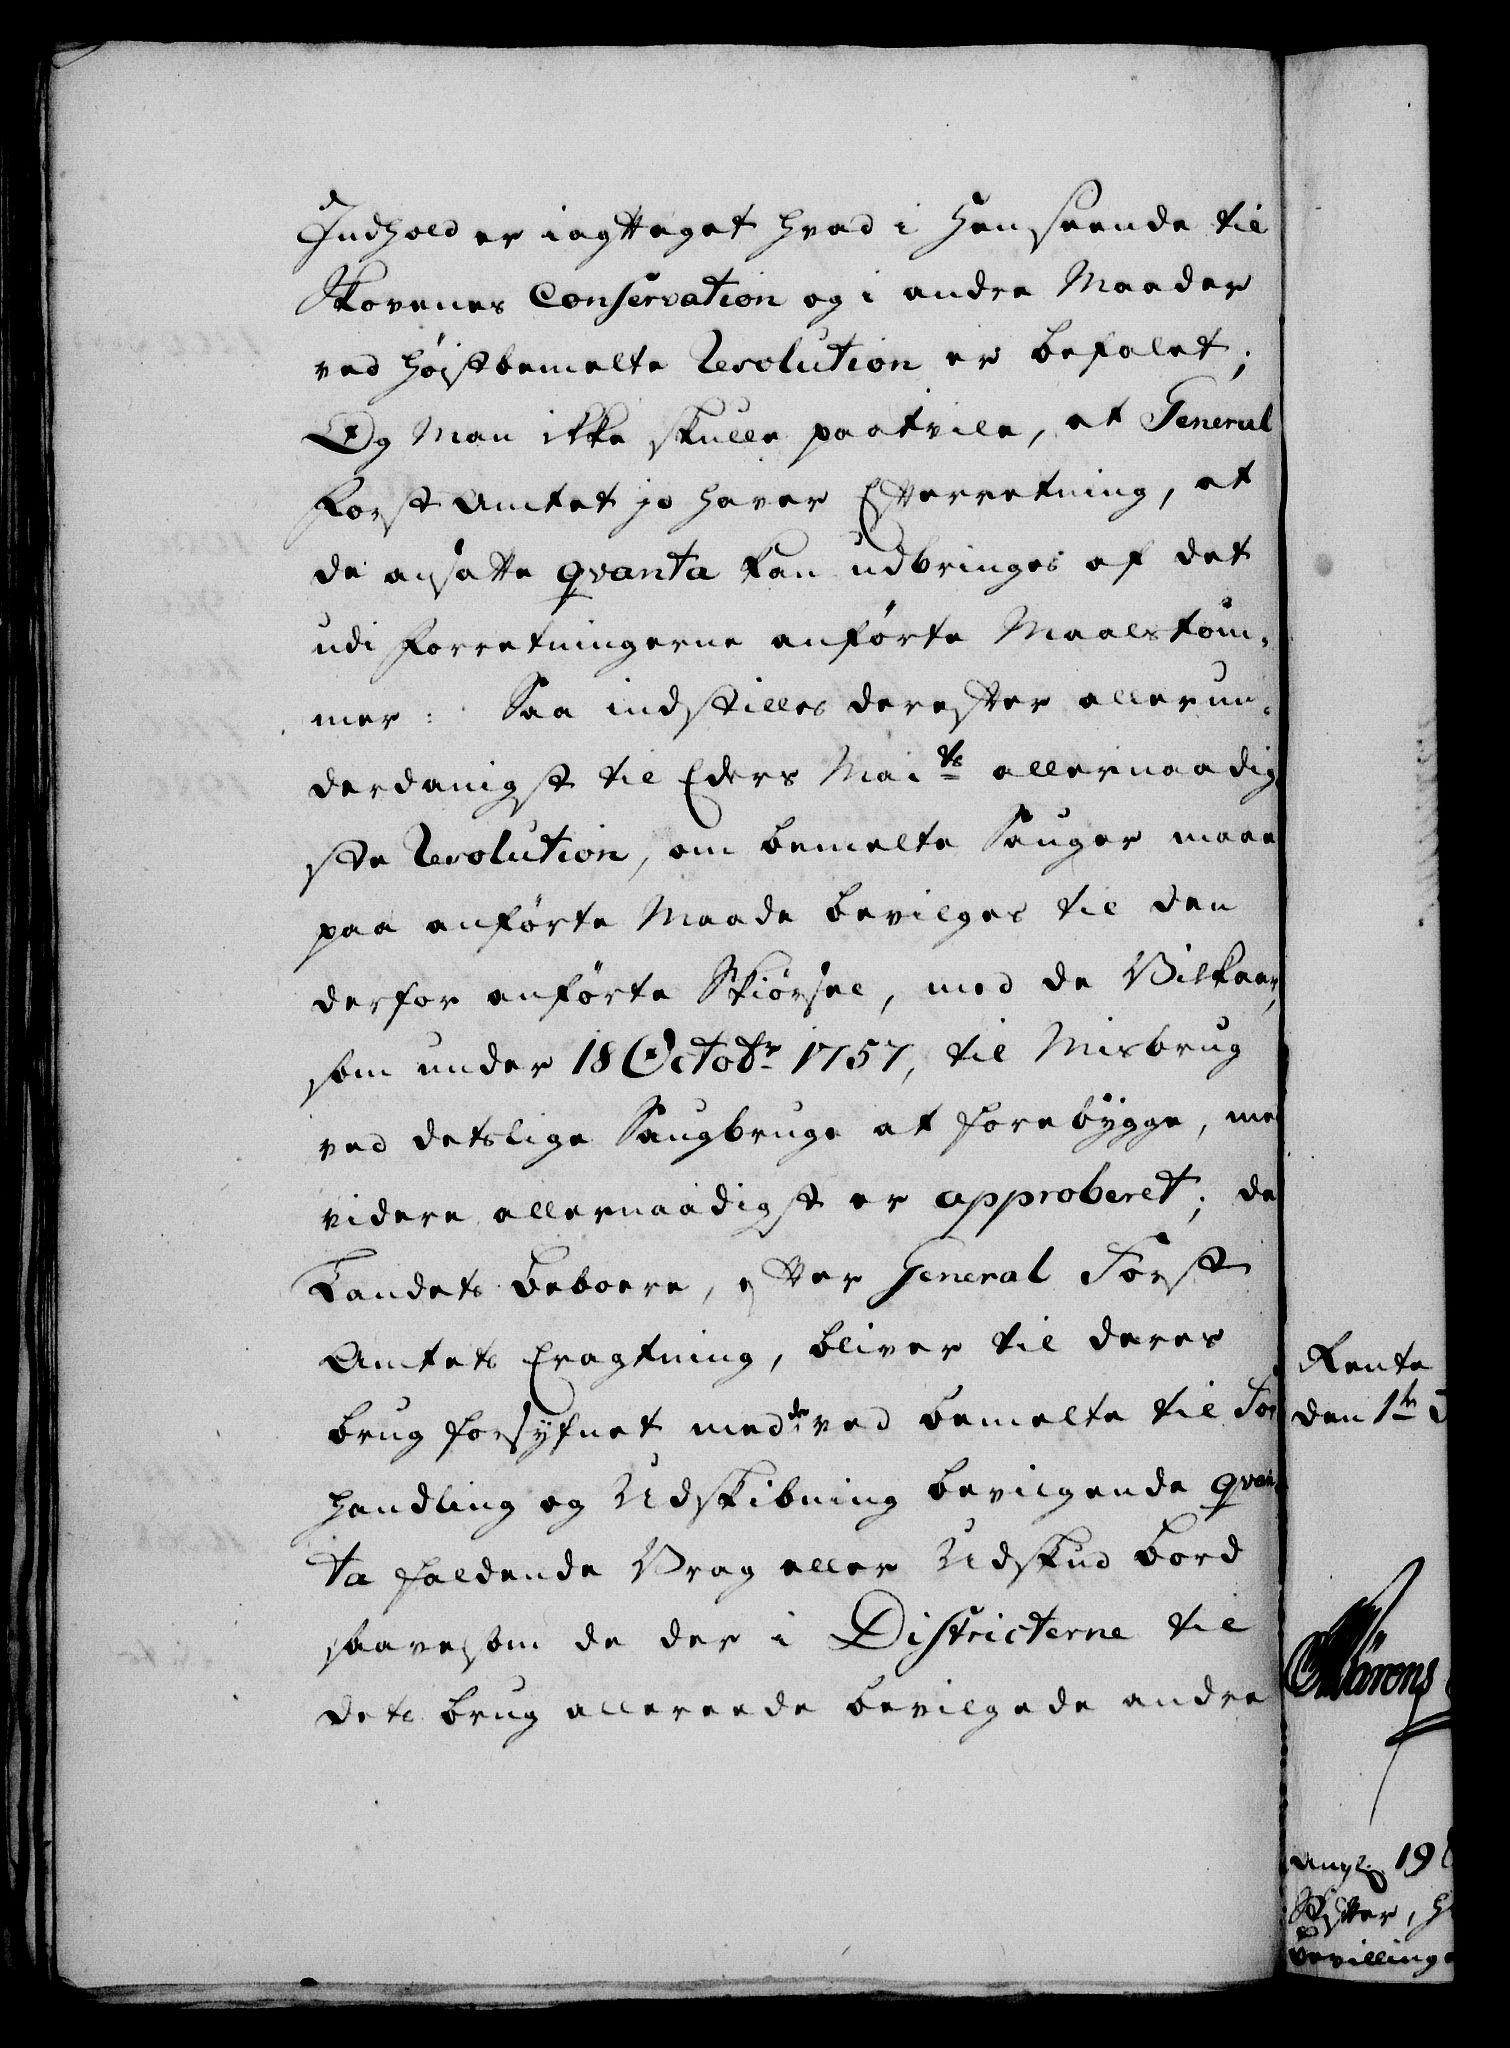 Indhold er iagttaget hvad i Henseende til
Skovenes Conservation og i andre Maader
ved høistbemelte Resolution er befalet;
Og Man ikke skulle paatvile, at General
Forst Amtet jo haver Efterretning, at
de ansatte qvanta kan udbringes af det
udi Forretningerne anførte Maalstøm-
mer: Saa indstilles derefter allerun-
derdanigst til Eders Mai.ts allernaadig
ste Resolution, om bemelte Sauger maae
paa anførte Maade bevilges til den
derfor anførte Skiørsel, med de Vilkaar,
som under 18 Octobr 1757, til Misbrug
ved detslige Saugbruge at forebygge, me
videre allernaadigst er approberet; da
Landets Beboere, efter General Forst
Amtets Eragtning, bliver til deres
brug forsyfnet med de ved bemelte til For
handling og Udskibning bevilgende qvan
ta faldende Vrag eller Udskud bord
saavelsom de der i Districterne til
dets brug allereede bevilgede andre
Rente
den 1te
19
Skifter, H
bevillinge